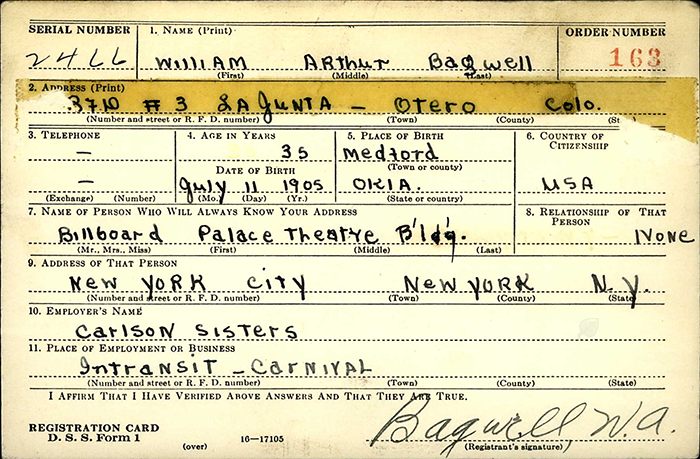 SERIAL NUMBER 1. NAME (Print) ORDER NUMBER
2466 WILLIAM ARTHUR BAGWELL 163
(First) (Middle) (Last)
2. ADDRESS (Print)
#3 LA JUNTA - OTERO COLO.
(Number and street or R. F. D. number) (Town) (County) (St
3. TELEPHONE 4. AGE IN YEARS 5. PLACE OF BIRTH 6. COUNTRY OF CITIZENSHIP
— 35 Medford
DATE OF BIRTH (Town or county)
— July 11 1905 OKLA. USA
(Exchange) (Number) (Mo.) (Day) (Yr.) (State or country)
7. NAME OF PERSON WHO WILL ALWAYS KNOW YOUR ADDRESS 8. RELATIONSHIP OF THAT PERSON
Billboard Palace Theatre B'ld'g. NONE
(Mr., Mrs., Miss) (First) (Middle) (Last)
9. ADDRESS OF THAT PERSON
NEW YORK CITY NEW YORK N.Y.
(Number and street or R. F. D. number) (Town) (County) (State)
10. EMPLOYER'S NAME
CARLSON SISTERS
11. PLACE OF EMPLOYMENT OR BUSINESS
INTRANSIT - CARNIVAL
(Number and street or R. F. D. number) (Town) (County) (State)
I AFFIRM THAT I HAVE VERIFIED ABOVE ANSWERS AND THAT THEY ARE TRUE.
REGISTRATION CARD
D. S. S. Form 1 (over) 16—17105 Bagwell, W.A.
(Registrant's signature)